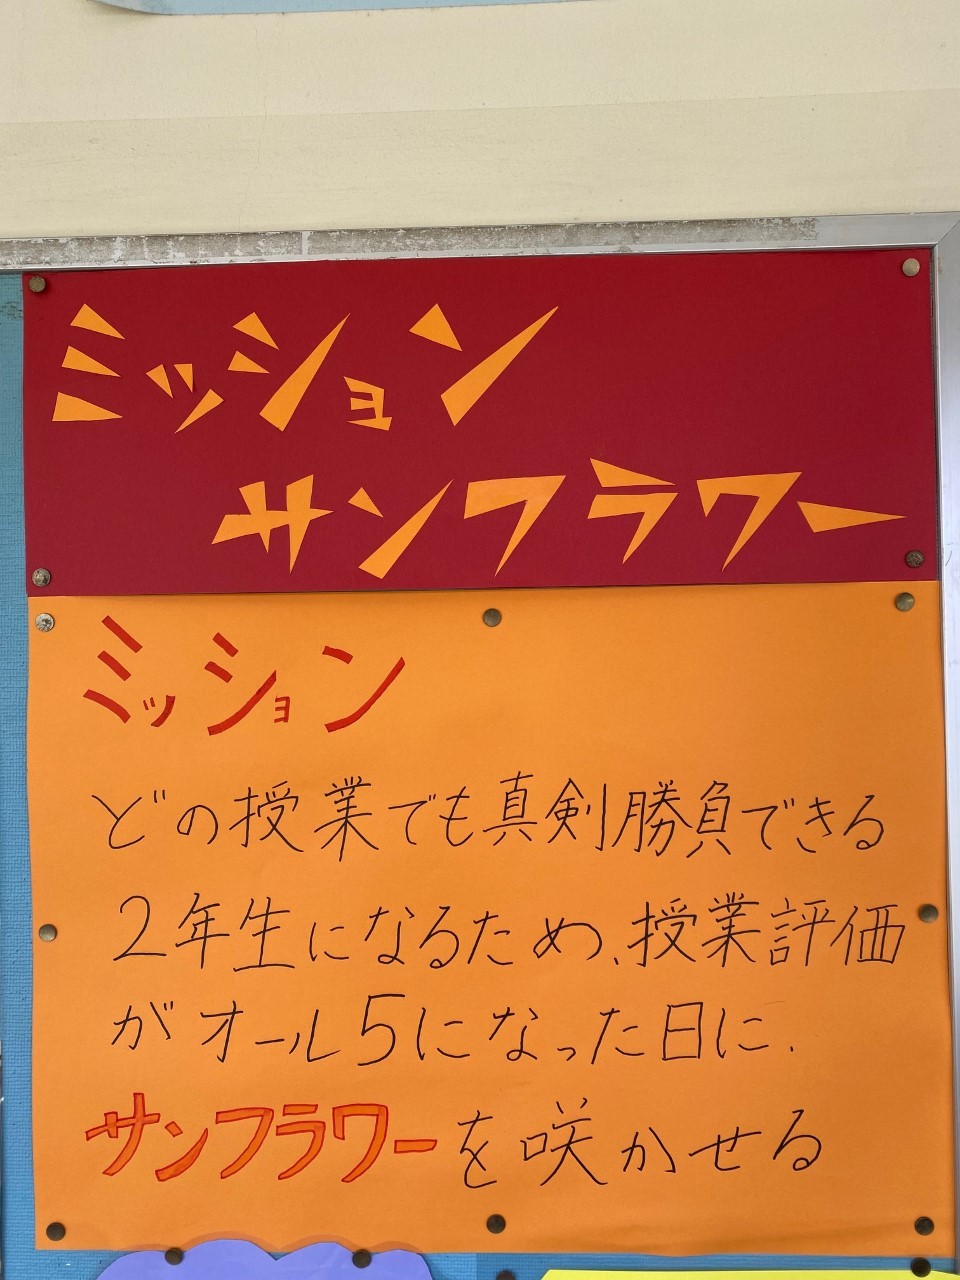 ミッション
サンフラワー
ミッション
どの授業でも真剣勝負できる
2年生になるため、授業評価
がオール5になった日に、
サンフラワーを咲かせる